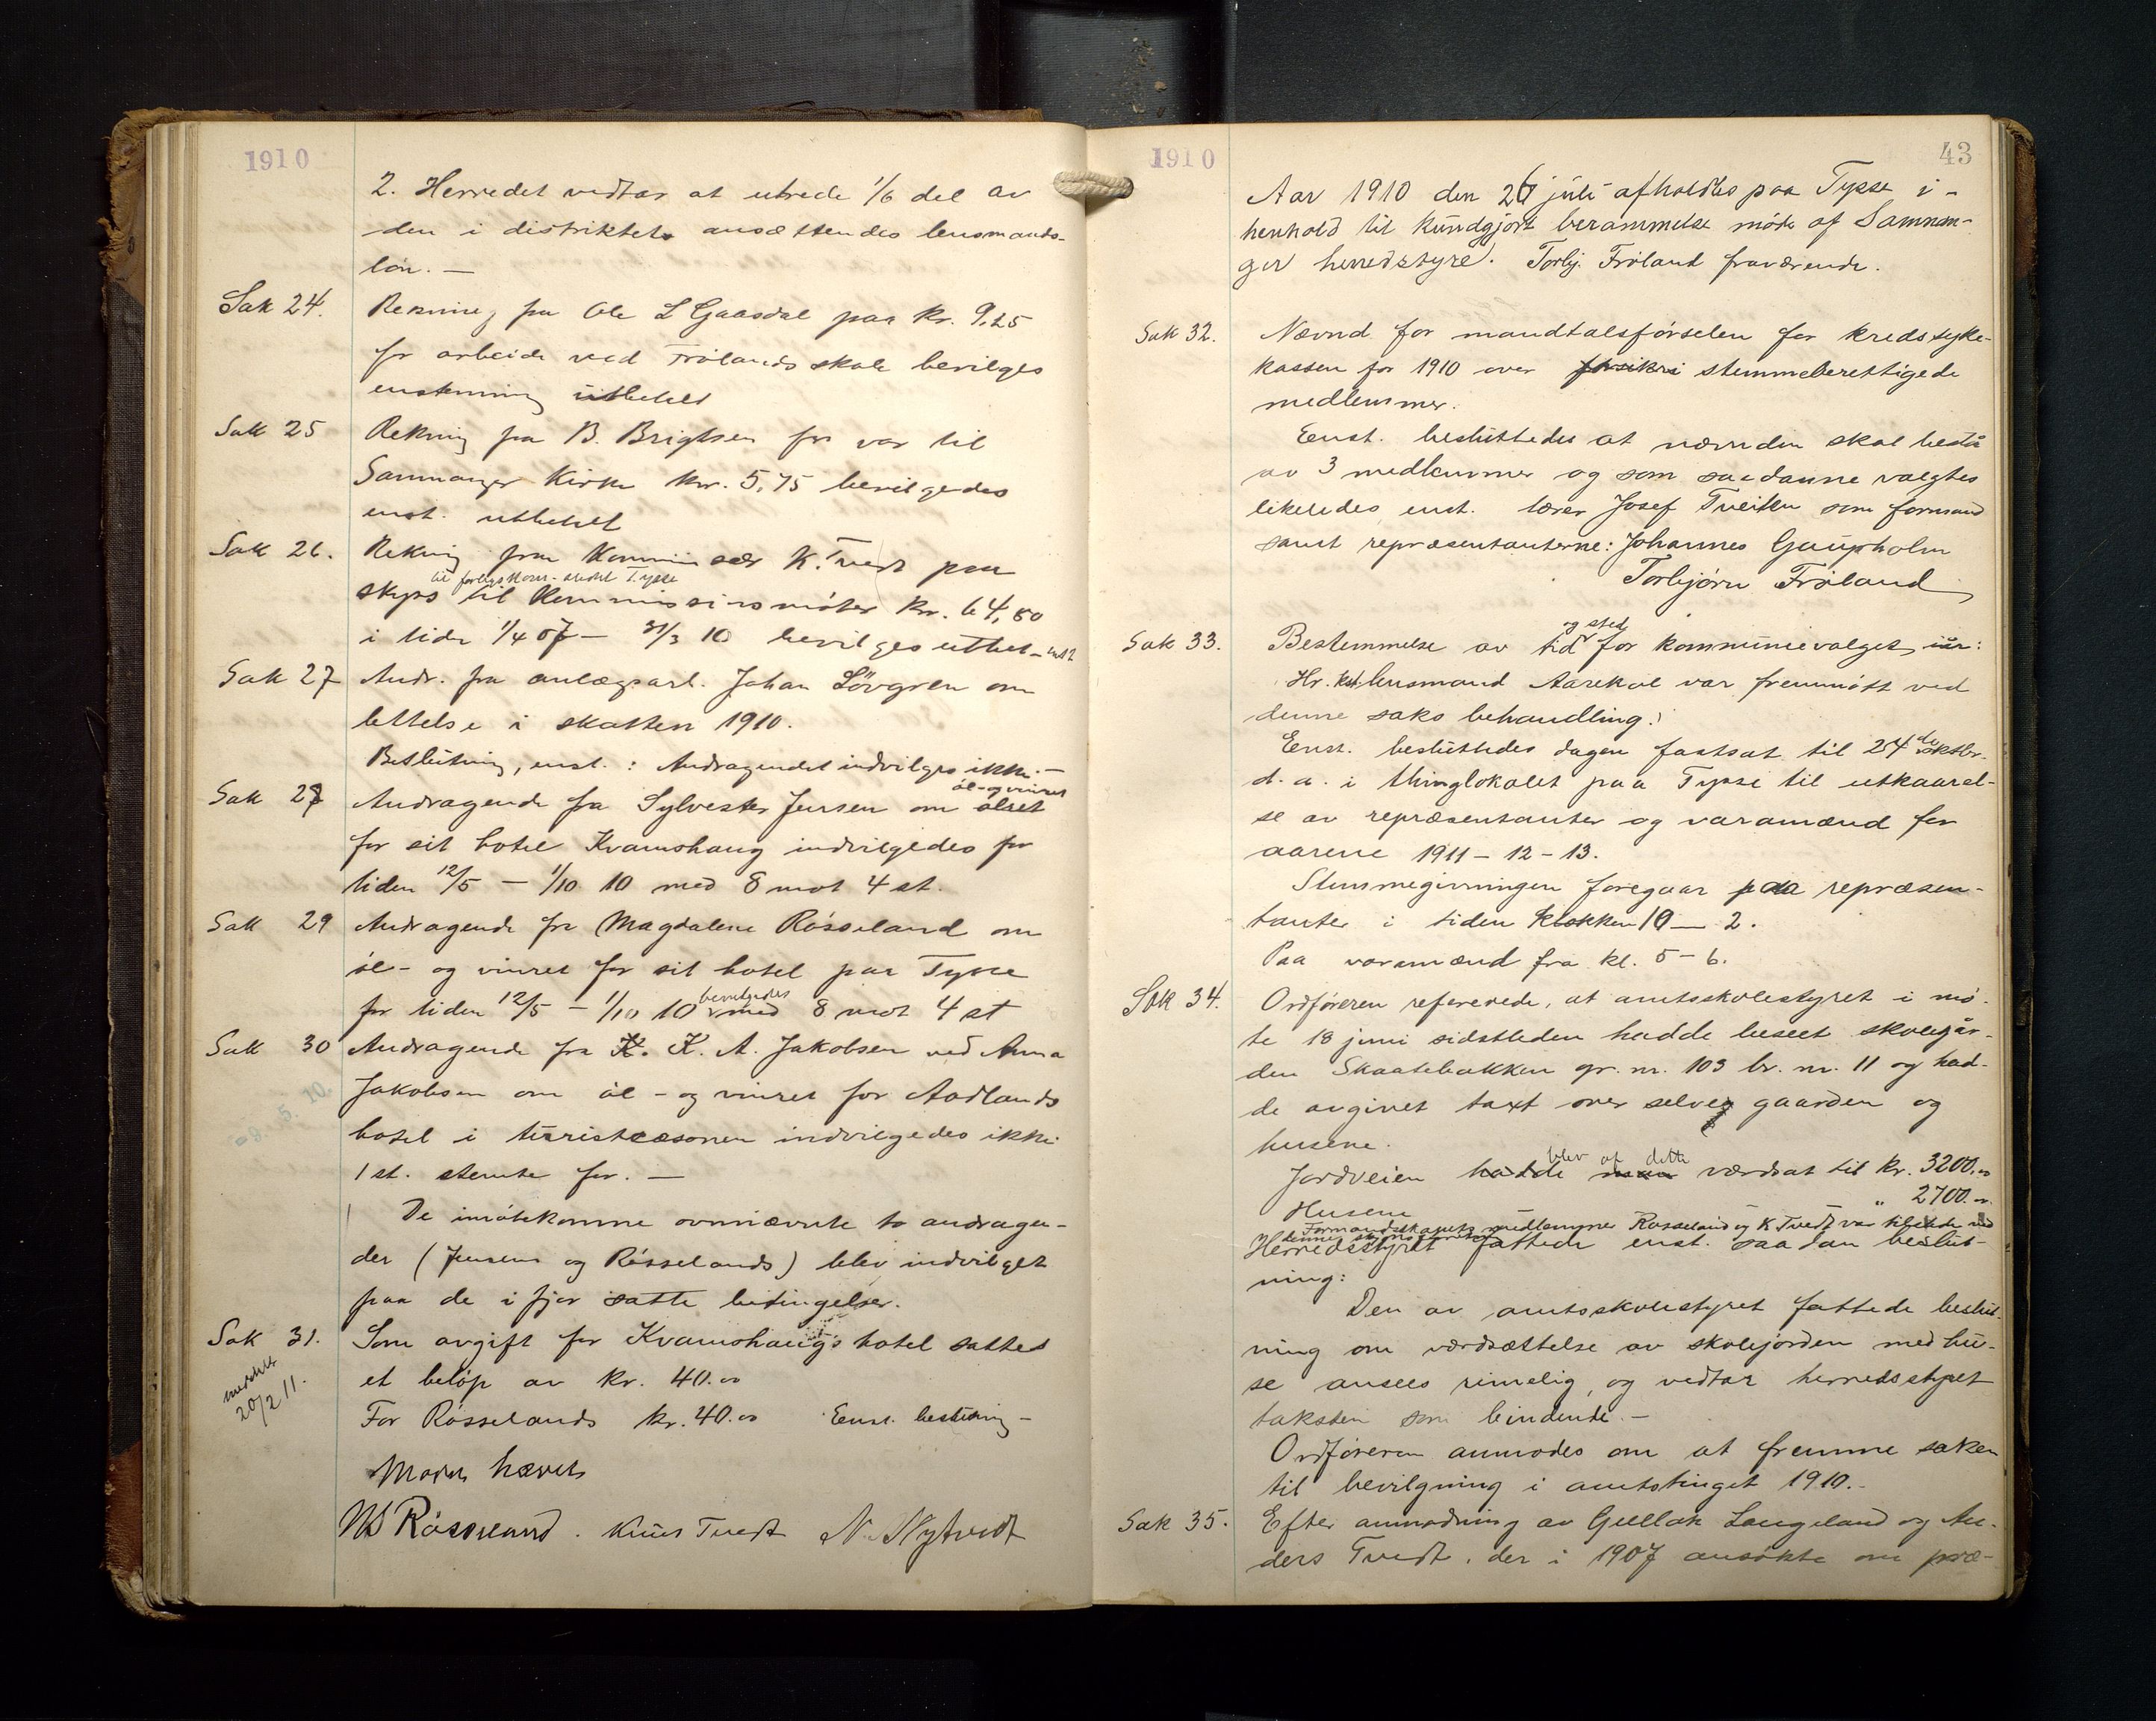 1910
2. Herredet vedtar at utrede 1/6 del av
den i distriktets ansættendes lensmands-
løn. —
Sak 24. Rekning fra Ole L Gaasdal paa kr. 9,25
for arbeide ved Frølands skole bevilges
enstemmig utbetalt
Sak 25 Rekning fra B. Brigtsen for var til
Samnanger Kirke kr. 5,75 bevilgedes
enst. utbetalt
Sak 26. Rekning fra Kommissær K. Tvedt paa
til forligskom. Tysse
skyss til Kommissionsmøter kr. 64,80
i tiden 1/4 07 — 31/3 10 bevilges utbet- enst
Sak 27 Andr. fra anlægsarb. Johan Lövgren om
lettelse i skatten 1910.
Beslutning, enst.: Andragendet indvilges ikke. —
øl- og vinret
Sak 28 Andragende fra Sylvester Jensen om ølret
for sit hotel Kvamshaug indvilgedes for
tiden 12/5 — 1/10 10 med 8 mot 4 st.
Sak 29 Andragende fra Magdalene Røsseland om
øl- og vinret for sit hotel paa Tysse
bevilgedes
for tiden 12/5 — 1/10 10 med 8 mot 4 st
Sak 30 Andragende fra K. K. A. Jakobsen ved Anna
Jakobsen om øl- og vinret for Aadlands
hotel i turistsæsonen indvilgedes ikke
1 st. stemte for. —
De imøtekomne ovnnævnte to andragen-
der (Jensens og Røsselands) blev indvilget
paa de i fjor satte betingelser.
Sak 31. Som avgift for Kvamshaugs hotel sattes
et beløp av kr. 40.00
20/2 11.
For Røsselands kr. 40.00 Enst. beslutning —
NS Røsseland. Knut Tvedt N. Nytvedt
1910
43
Aar 1910 den 26 juli afholdtes paa Tysse i-
henhold til kundgjort berammelse møde af Samnan-
ger herredstyre. Torbj. Frøland fraværende.
Sak 32. Nævnd for mandtalsførselen for kredssyke-
kassen for 1910 over forsikri stemmeberettigede
medlemmer.
Enst. besluttedes at nævnden skal bestå
av 3 medlemmer og som saadanne valgtes
likeledes enst. lærer Josef Tveiten som formand
samt repræsentanterne: Johannes Gaupholm
Torbjørn Frøland
og sted
Sak 33. Bestemmelse av tid for kommunevalget iår:
Hr. kst. lensmand Aarekol var fremmøtt ved
denne saks behandling.
Enst. besluttedes dagen fastsat til 24de oktbr.
d. a. i thinglokalet paa Tysse til utkaarel-
se av repræsentanter og varamænd for
aarene 1911 – 12 – 13.
Stemmegivningen foregaar paa repræsen-
tanter i tiden klokken 10 — 2.
Paa varamænd fra kl. 5 – 6.
Sak 34. Ordføreren refererede, at amtsskolestyret i mø-
te 18 juni sidstleden hadde beseet skolegår-
den Skaatebakken gr. nr. 103 br. nr. 11 og had-
de avgivet taxt over selve gaarden og
husene.
blev af dette
Jordveien hadde man værdsat til kr. 3200.00
Husene " 2700.00
Formandskapets medlemmer Røsseland og K Tvedt var tilstede ved
Herredsstyret fattede enst. saadan beslut-
ning:
Den av amtsskolestyret fattede beslut-
ning om værdsættelse av skolejorden med hu-
se ansees rimelig, og vedtar herredsstyret
taksten som bindende. —
Ordføreren anmodes om at fremme saken
til bevilgning i amtstinget 1910. –
Sak 35. Efter anmodning av Gullak Langeland og An-
ders Tvedt, der i 1907 ansøkte om præ-